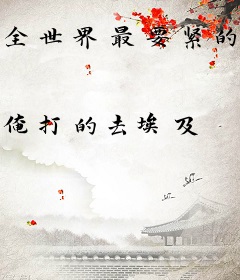 全世界最要紧的
俺打的去埃及